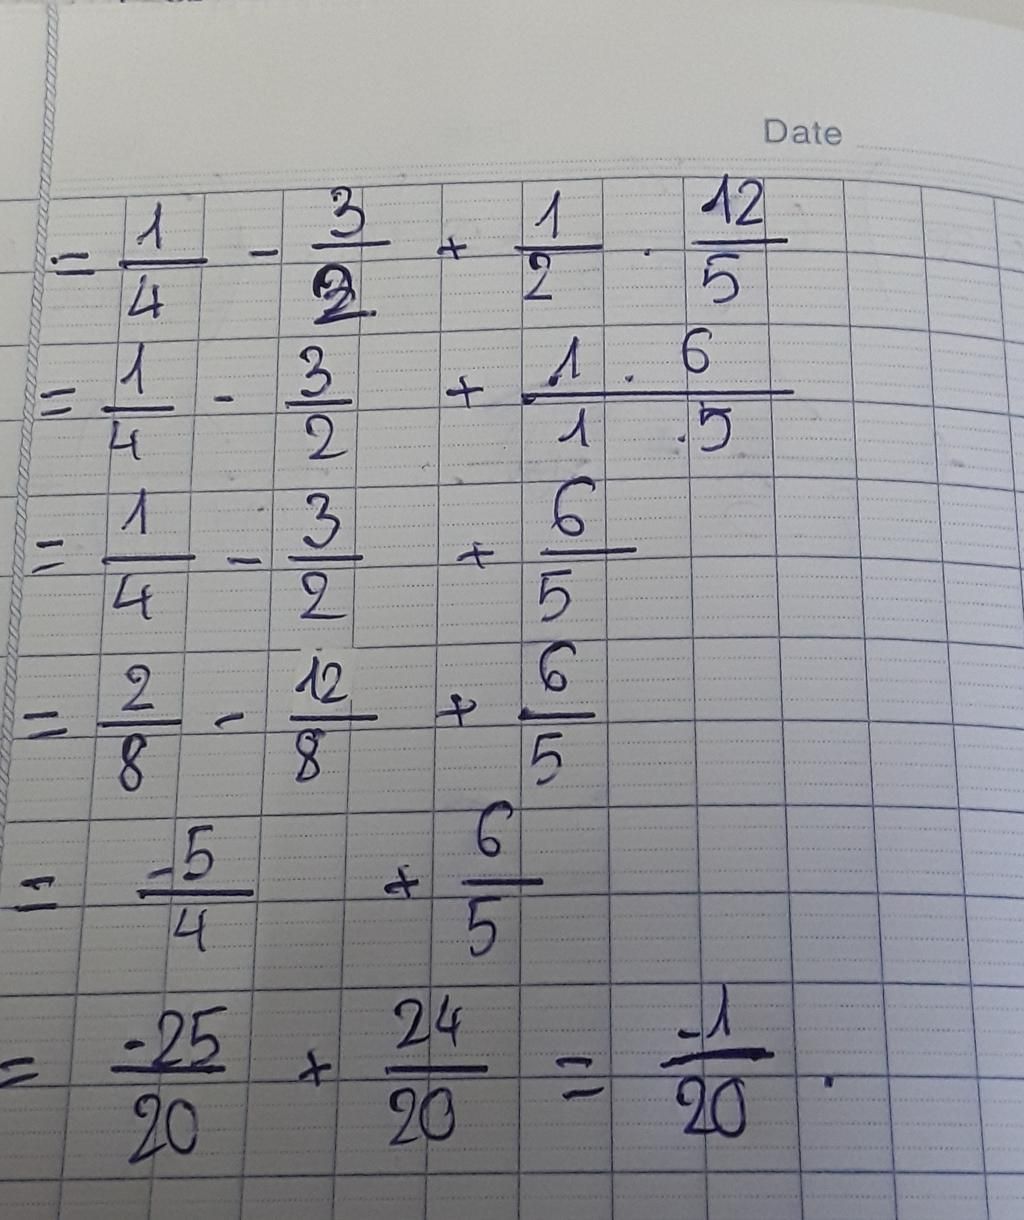 Date
= 1/4 - 3/2 + 1/2 . 12/5
= 1/4 - 3/2 + 1 . 6/1 . 5
= 1/4 - 3/2 + 6/5
= 2/8 - 12/8 + 6/5
= -5/4 + 6/5
= -25/20 + 24/20 = -1/20 .